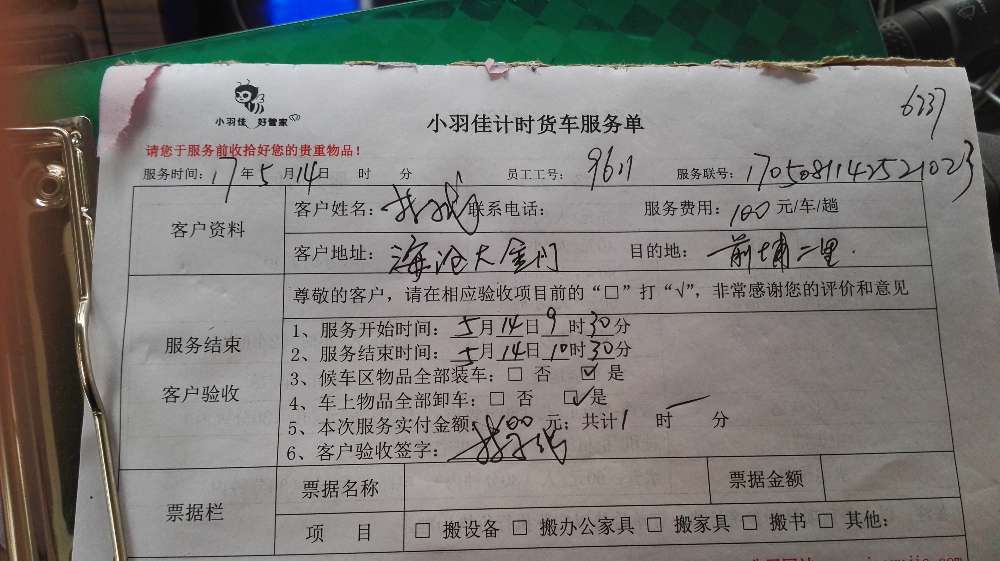 小羽佳 好管家
小羽佳计时货车服务单
6237
请您于服务前收拾好您的贵重物品！
服务时间：17年5月14日 时 分 员工工号：9611 服务联号：1705081142521023
客户资料
客户姓名： 联系电话： 服务费用：100元/车/趟
客户地址：海沧大金门 目的地：前埔二里
尊敬的客户，请在相应验收项目前的“□”打“√”，非常感谢您的评价和意见
服务结束
客户验收
1、服务开始时间：5月14日9时30分
2、服务结束时间：5月14日10时30分
3、候车区物品全部装车：□ 否 ☑ 是
4、车上物品全部卸车：□ 否 ☑是
5、本次服务实付金额：100元；共计1 时 一 分
6、客户验收签字：
票据栏
票据名称 票据金额
项 目 □ 搬设备 □ 搬办公家具 □ 搬家具 □ 搬书 □ 其他：